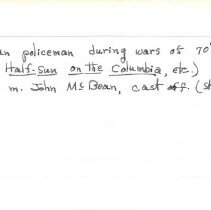 an policeman during wars of 70'
Half-Sun on the Columbia, etc.)
m. John McBean, cast off. (sh